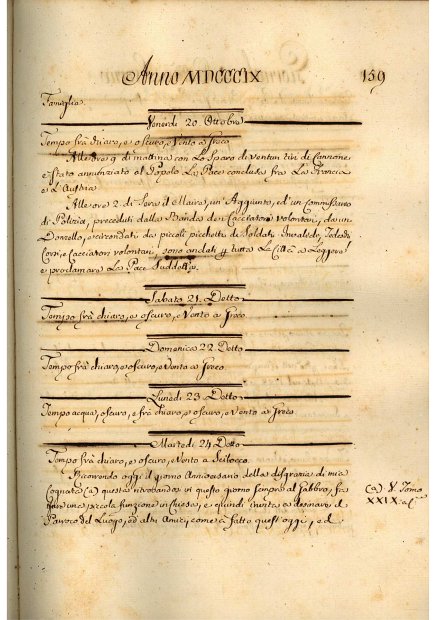 Anno MDCCCIX
159
Famiglia.
Venerdi 20 Ottobre
Tempo frà chiaro, e oscuro, e Vento a Greco
Alle ore 9 di mattina con Lo Sparo di Ventun tiri di Cannone
è stato annunziato al Popolo La Pace conclusa fra La Francia
e L'Austria
Alle ore 2 di Sera il Maire, un' Aggiunto, ed' un Commissario
di Polizia, preceduti dalla Banda de Cacciatori Volontari, da un
Donzello, e circondati da piccoli picchetti di Soldati
Corsi, e Cacciatori volontari, sono andati p tutta La Città a Leggere
e proclamare La Pace Suddetta.
Sabato 21. Detto
Tempo frà chiaro, e oscuro, e Vento a Greco
Domenica 22 Detto
Tempo frà chiaro, e oscuro, e Vento a Greco
Lunedi 23 Detto
Tempo acqua, oscuro, e frà chiaro, e oscuro, e Vento a Greco
Martedi 24 Detto
Tempo frà chiaro, e oscuro, e Vento a Scilocco
Ricorrendo oggi il giorno Anniversario della disgrazia di mia
Cognata (a) questa ritrovandosi in questo giorno sempre al Fabbro, fa
fare una piccola funzione in Chiesa, e quindi invita a desinare il
Parroco del Luogo, ed altri Amici, come à fatto quest' oggi, ed
(a) V. Tomo
XXIX. a C.